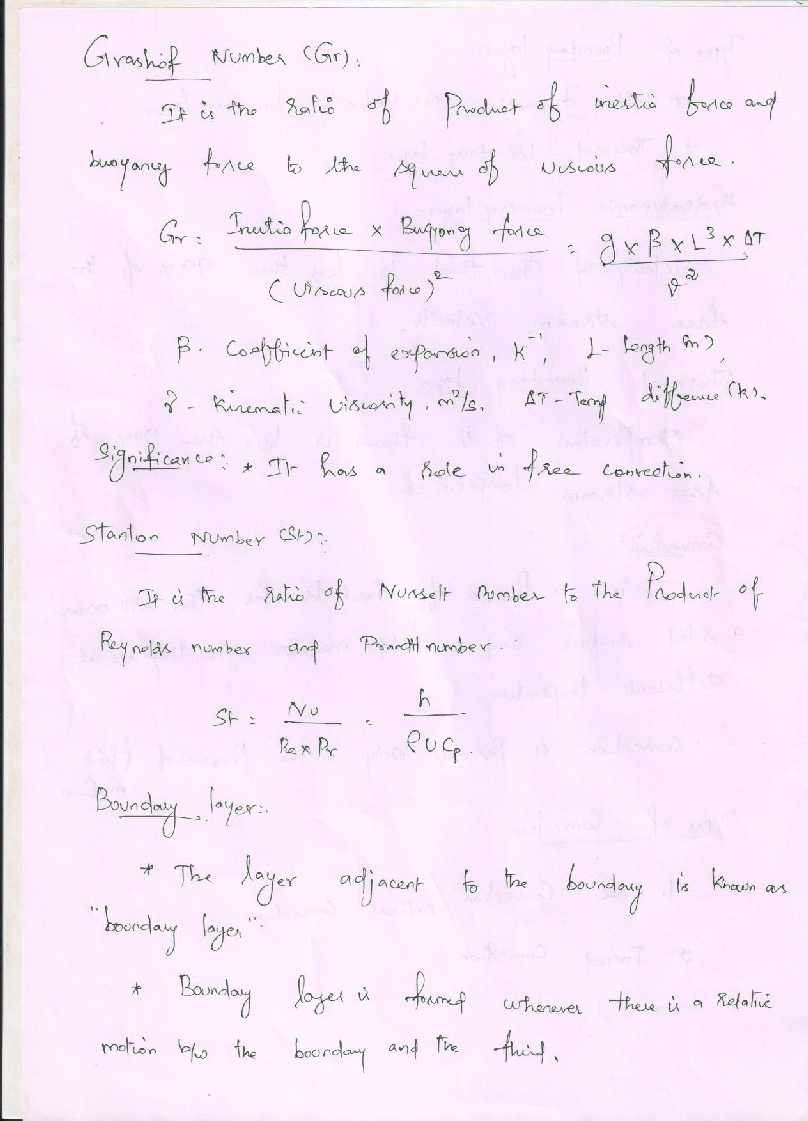 Grashof Number (Gr):
It is the Ratio of Product of inertia force and
buoyancy force to the square of viscous force.
Gr = Inertia force x Buoyancy force / (Viscous force)² = g x β x L³ x ΔT / ν²
β - Coefficient of expansion, K⁻¹, L - Length (m),
ν - Kinematic viscosity, m²/s, ΔT - Temp difference (k).
Significance: * It has a Role in free convection.
Stanton Number (St):-
It is the Ratio of Nusselt Number to the Product of
Reynolds number and Prandtl number.
St = Nu / Re x Pr = h / ρ U Cp.
Boundary layer:-
* The layer adjacent to the boundary is known as
"boundary layer".
* Boundary layer is formed wherever there is a Relative
motion b/w the boundary and the fluid.